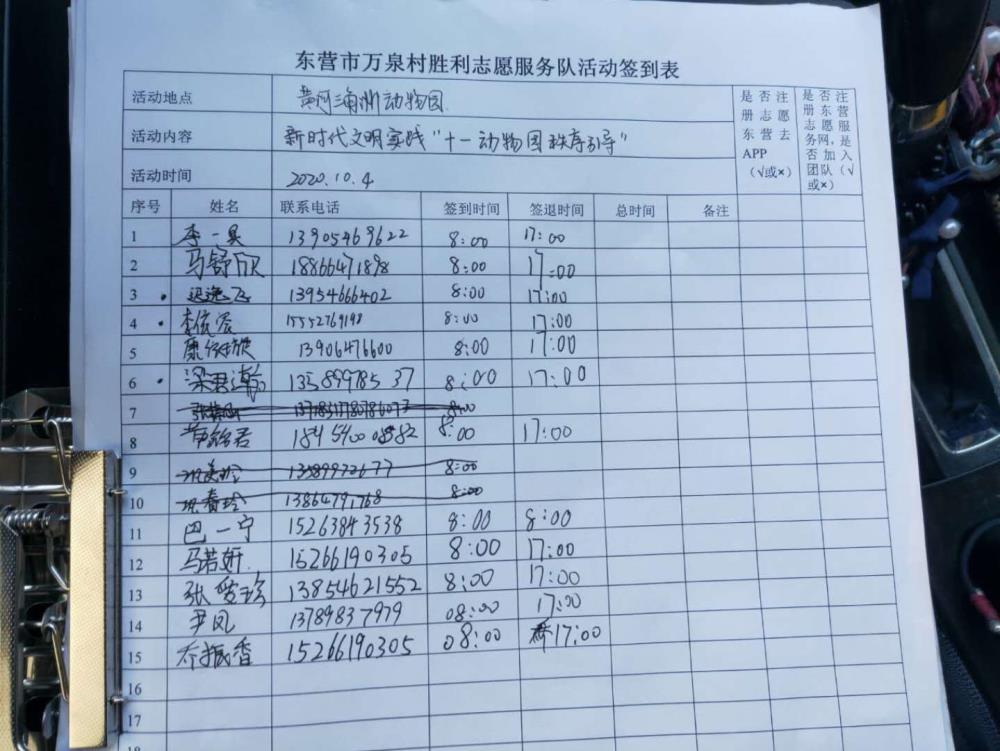 东营市万泉村胜利志愿服务队活动签到表
活动地点 黄河三角洲动物园 是否注册志愿东营去APP（√或×） 是否注册东营志愿服务网，是否加入团队（√或×）
活动内容 新时代文明实践“十一动物园秩序引导”
活动时间 2020.10.4
序号 姓名 联系电话 签到时间 签退时间 总时间 备注
1 李一 13905469622 8:00 17:00
2 马舒欣 18866471898 8:00 17:00
3 逸飞 13954666402 8:00 17:00
4 李 15552769198 8:00 17:00
5 康 13906476600 8:00 17:00
6 梁君瀚 13589978537 8:00 17:00
7 8:00
8 8:00 17:00
9 13589972677 8:00
10 13864791768 8:00
11 巴一宁 15263843538 8:00 8:00
12 马若妍 15266190305 8:00 17:00
13 张爱珍 13854621552 8:00 17:00
14 尹凤 13789837979 08:00 17:00
15 乔振香 15266190305 08:00 17:00
16
17
18